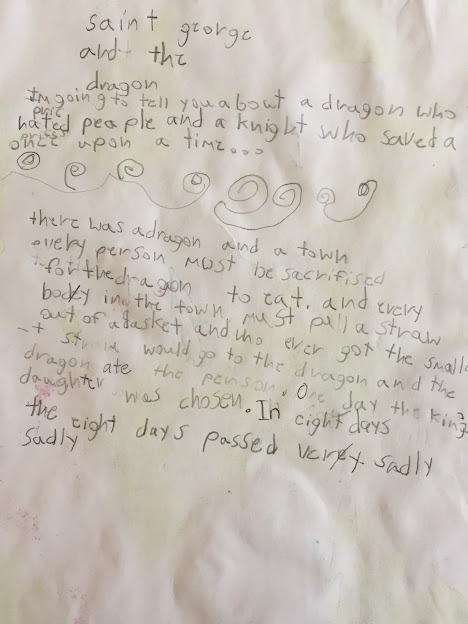 saint george
and the
dragon
I'm going to tell you about a dragon who
hated people and a knight who saved a
once upon a time...
there was a dragon and a town
every person must be sacrifised
for the dragon to eat. and every
body in the town must pull a straw
out of a basket and who ever got the small
-t straw would go to the dragon and the
dragon ate the person. One day the king
daughter was chosen. In eight days
the eight days passed very sadly
sadly